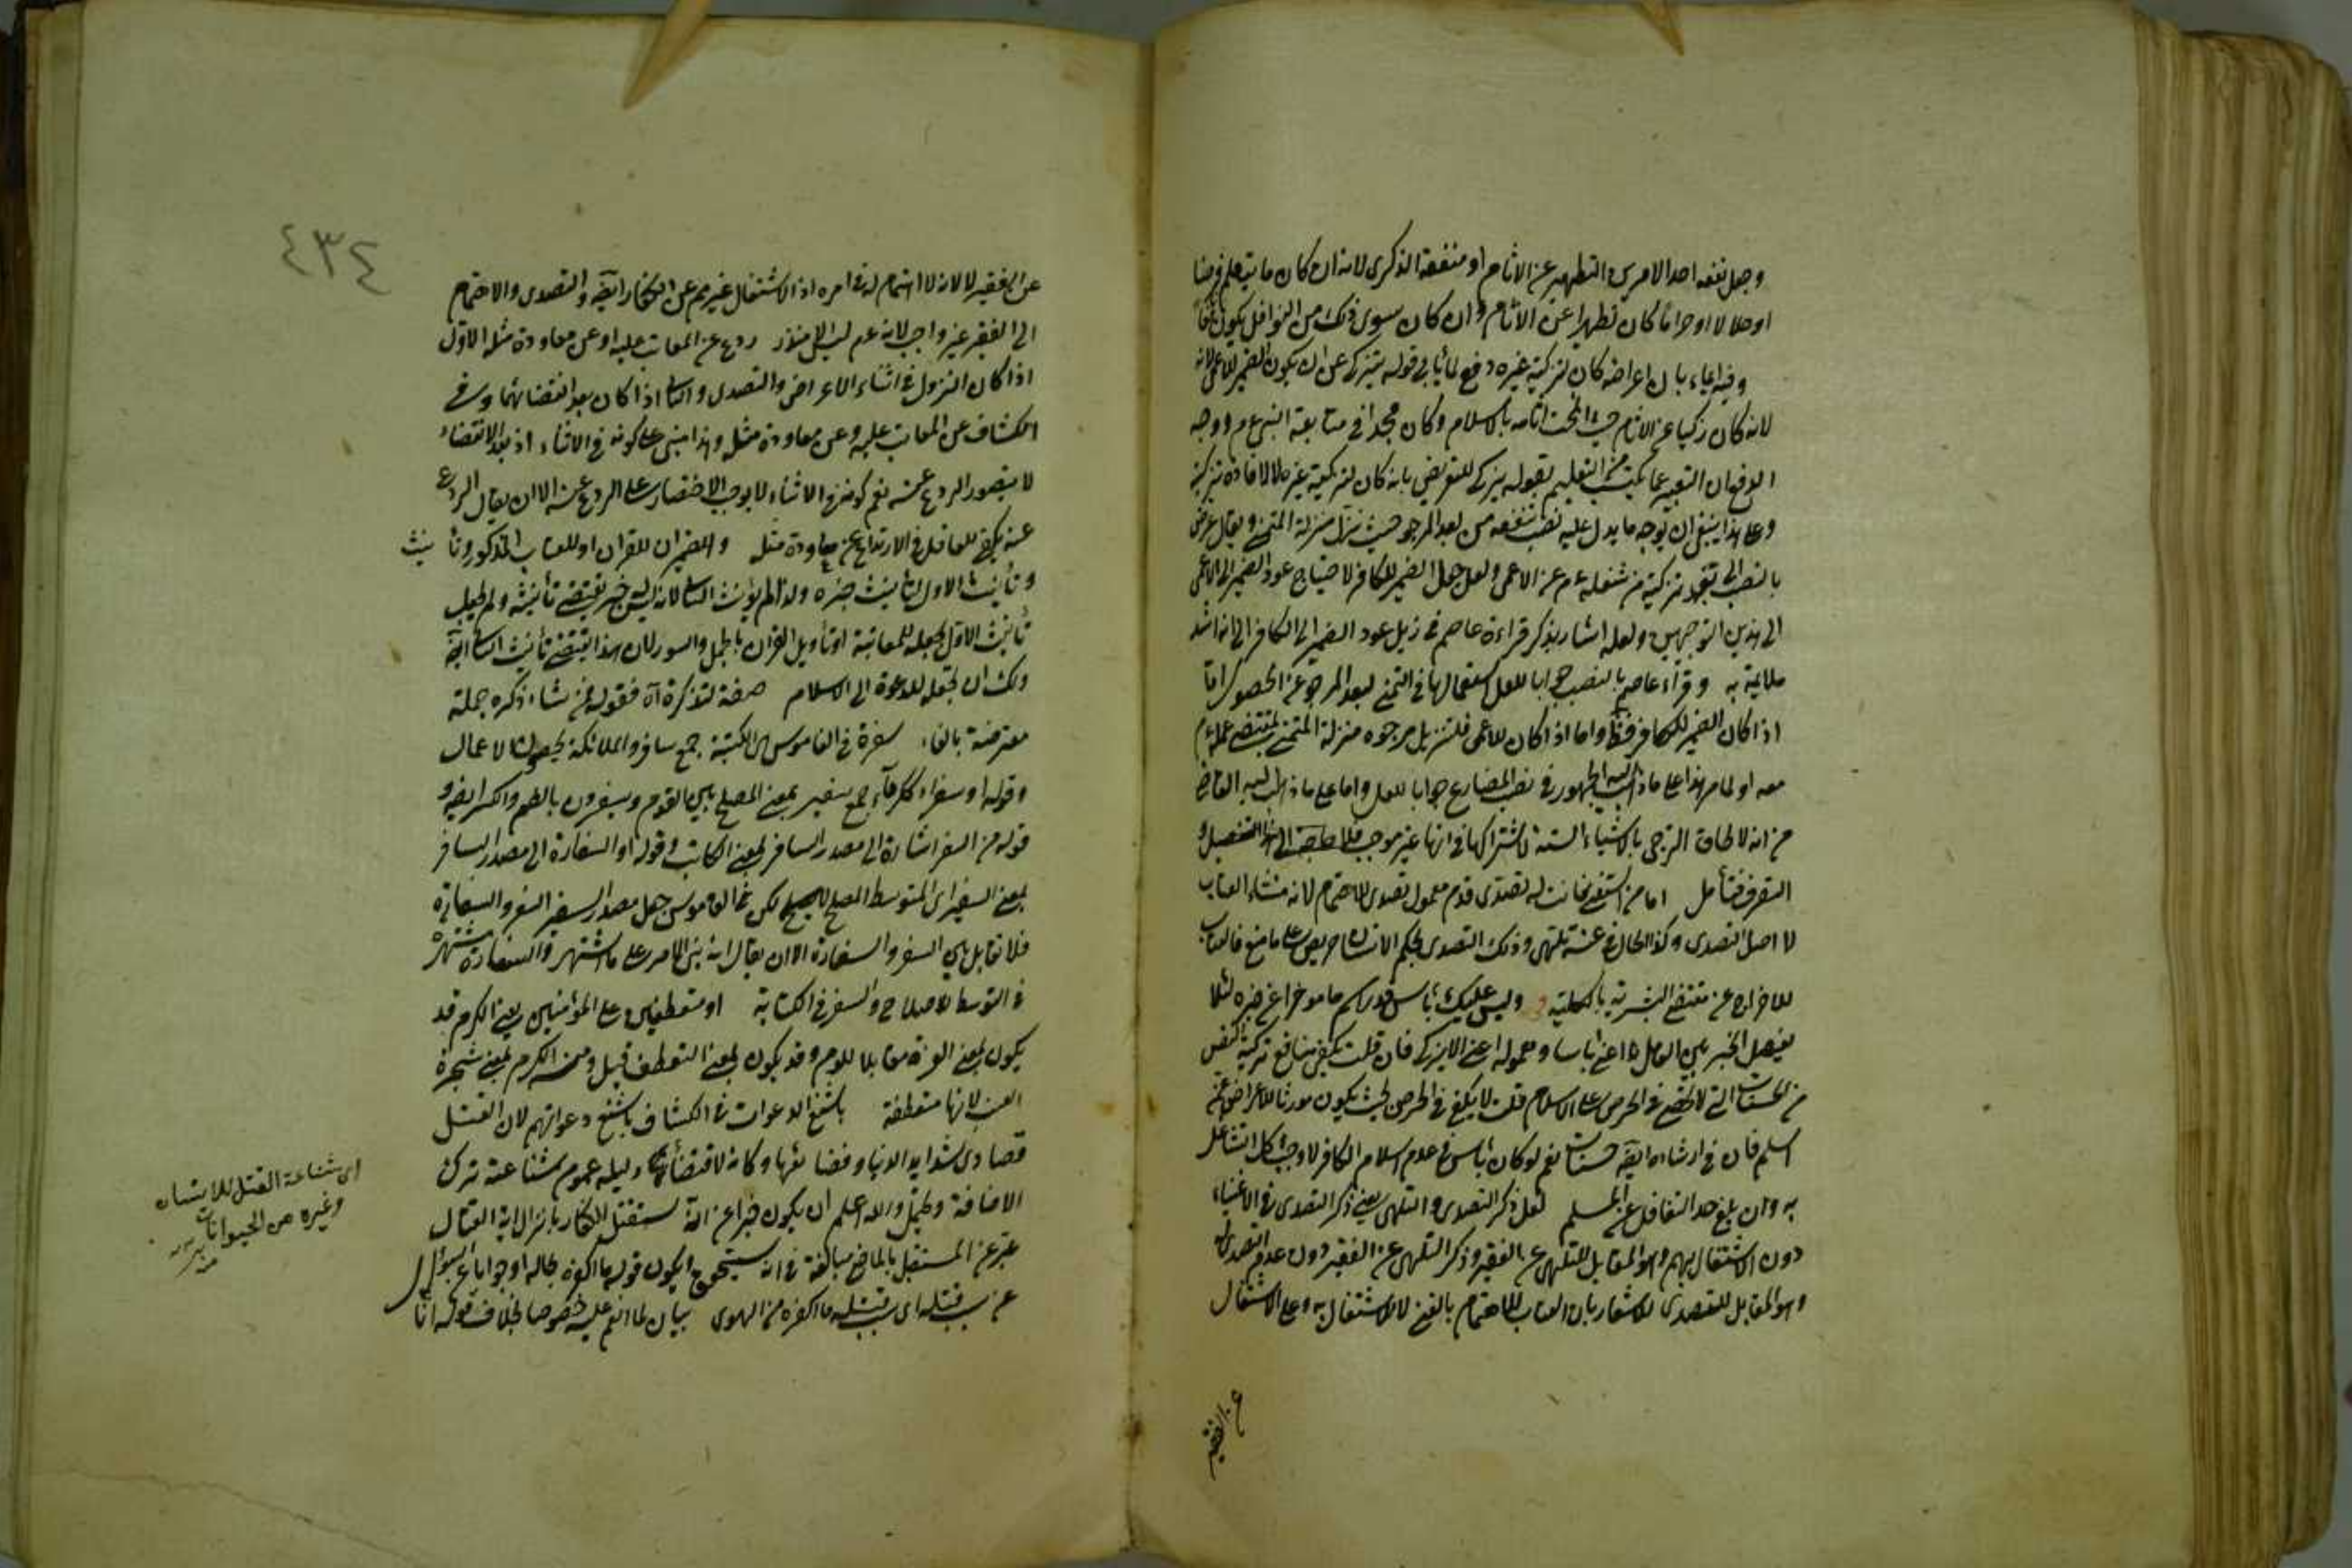 وجعل نفعه احد الامرين التطهير عن الاثام او منفعة الذكرى لانه ان كان ما يتعلم فرضا
او حلالا او حراما كان تطهرا عن الاثام وان كان سوى ذلك من النوافل يكون
وفيه ايماء بان اعراضه كان لتزكية غيره دفع لما يأبى قوله يتزكى عن ان يكون الضمير للاعمى لانه
لانه كان زكيا عن الاثام حيث انمحت اثامه بالاسلام وكان مجدا في متابعة النبي عم ووجه
الدفع ان التعبير عما يكتسب من التعليم بقوله يزكى للتعريض بانه كان لتزكية غيره لا لافادة تزكية
وعلى هذا ينبغي ان يوجه ما يدل عليه نصب فتنفعه من بعد المرجو حيث نزل منزلة المتمنى ويقال عرض
بالنصب الى بعد تزكية من شغله عم عن الاعمى ولعل جعل الضمير للكافر لاحتياج عود الضمير الى الاعمى
الى هذين التوجيهين ولعله اشار بذكر قراءة عاصم في ذيل عود الضمير الى الكافر الى انه اشد
ملايمة به وقراءة عاصم بالنصب جوابا للعل لاستعمالها في التمني لبعد المرجو عن الحصول اما
اذا كان الضمير للكافر فظ واما اذا كان للاعمى فلتنزيل مرجوه منزلة المتمنى بمقتضى عمله عم
معه او لما مر هذا على ما ذهب اليه الجمهور في نصب المضارع جوابا للعل واما على ما ذهب اليه
من انه لالحاق الترجي بالاشياء الستة لاشتراكها في انها غير موجب فلا حاجة الى هذا التفصيل و
التصرف فتأمل اما من استغنى فانت له تصدى قدم معمول تصدى للاهتمام لانه منشاء العتاب
لا اصل التصدى وكذا الحال في عنه تلهى وذلك التصدى بحكم الانسان حريص على ما منع فالعتاب
للاخراج عن مقتضى البشرية بالكلية وليس عليك بأس قدر اسم ما موخرا عن خبره لئلا
يفصل الخبر بين العامل اعنى باسا ومعموله اعنى الا يزكى فان قلت يكفى منافع تزكية النفس
من الحسنات التي لا تحصى في الحرص على الاسلام قلت لا يكفى في الحرص بحيث يكون مورثا للاعراض عمن
اسلم فان في ارشاده ايضا حسنات نعم لو كان بأس في عدم اسلام الكافر لاوجب كل التشاغل
به وان بلغ حد التغافل عن المسلم لعل ذكر التصدى والتلهى يعنى ذكر التصدى في الاغنياء
دون الاشتغال بهم وهو المقابل للتلهى عن الفقير وذكر التلهى عن الفقير دون عدم التصدى له
وهو المقابل للتصدى للاشعار بان العتاب للاهتمام بالغنى لا للاشتغال به وعلى الاشتغال
عن الفقير
٤٣٤
عن الفقير لا لانه لا اهتمام له في امره اذ الاشتغال غير محرم عن الكفار ايضا والتصدى والاهتمام
الى الفقير غير واجب لانه عم ليس الا منذر ردع عن المعاتب عليه او عن معاودة مثله الاول
اذا كان النزول في اثناء الاعراض والتصدى والثاني اذا كان بعد انقضائهما وفي
الكشاف عن المعاتب عليه وعن معاودة مثله وهذا مبنى على كونه في الاثناء اذ بعد الانقضاء
لا يتصور الردع عنه نعم كونه في الاثناء لا يوجب الاختصار على الردع عنه الا ان يقال الردع
عنه يكفى للعاقل في الارتداع عن معاودة مثله والضميران للقران او للعتاب المذكور وتأنيث
وتأنيث الاول لتأنيث خبره ولذا لم يؤنث الثاني لانه ليس له خبر يقتضى تأنيثه ولم يجعل
تأنيث الاول لجعله للمعاتبة او تأويل القران بالجمل والسور لان هذا يقتضى تأنيث الثاني ايضا
ولك ان تجعله للدعوة الى الاسلام صفة لتذكرة اه فقوله فمن شاء ذكره جملة
معترضة بالفاء سفرة في القاموس الكتبة جمع سافر والملائكة يحصون الاعمال
وقوله او سفراء ككرماء جمع سفير بمعنى المصلح بين القوم ويسفرون بالضم والكسر ايضا و
قوله من السفر اشارة الى مصدر السافر بمعنى الكاتب وقوله او السفارة الى مصدر السافر
بمعنى السفير اى المتوسط المصلح لكن في القاموس جعل مصدر السفير السفر والسفارة
فلا تقابل بين السفر والسفارة الا ان يقال انه بنى الامر على ما اشتهر والسفارة مشتهرة
في التوسط للاصلاح والسفر في الكتابة او متعطفين على المؤمنين يعنى الكرم قد
يكون بمعنى العزة مقابلا للوم وقد يكون بمعنى التعطف قيل ومنه الكرم بمعنى شجرة
العنب لانها متعطفة باشنع الدعوات في الكشاف باشنع دعواتهم لان القتل
قصارى شدايد الدنيا وفضايعها وكانه لاقتضائها دليله عموم شناعته ترك
الاضافة ويحتمل والله اعلم ان يكون خبرا عن انه سيقتل الكفار بانزال اية القتال
عبر عن المستقبل بالماضى مبالغة في انه سيتحقق ويكون قوله ما اكفره بحاله او جوابا عن السوال
عن سبب قتله اى بسبب قتله ما اكفره من الهوى بيان لما انعم عليه خصوصا بخلاف قوله انا
اى شناعة القتل للانسان
وغيره من الحيوانات
منه